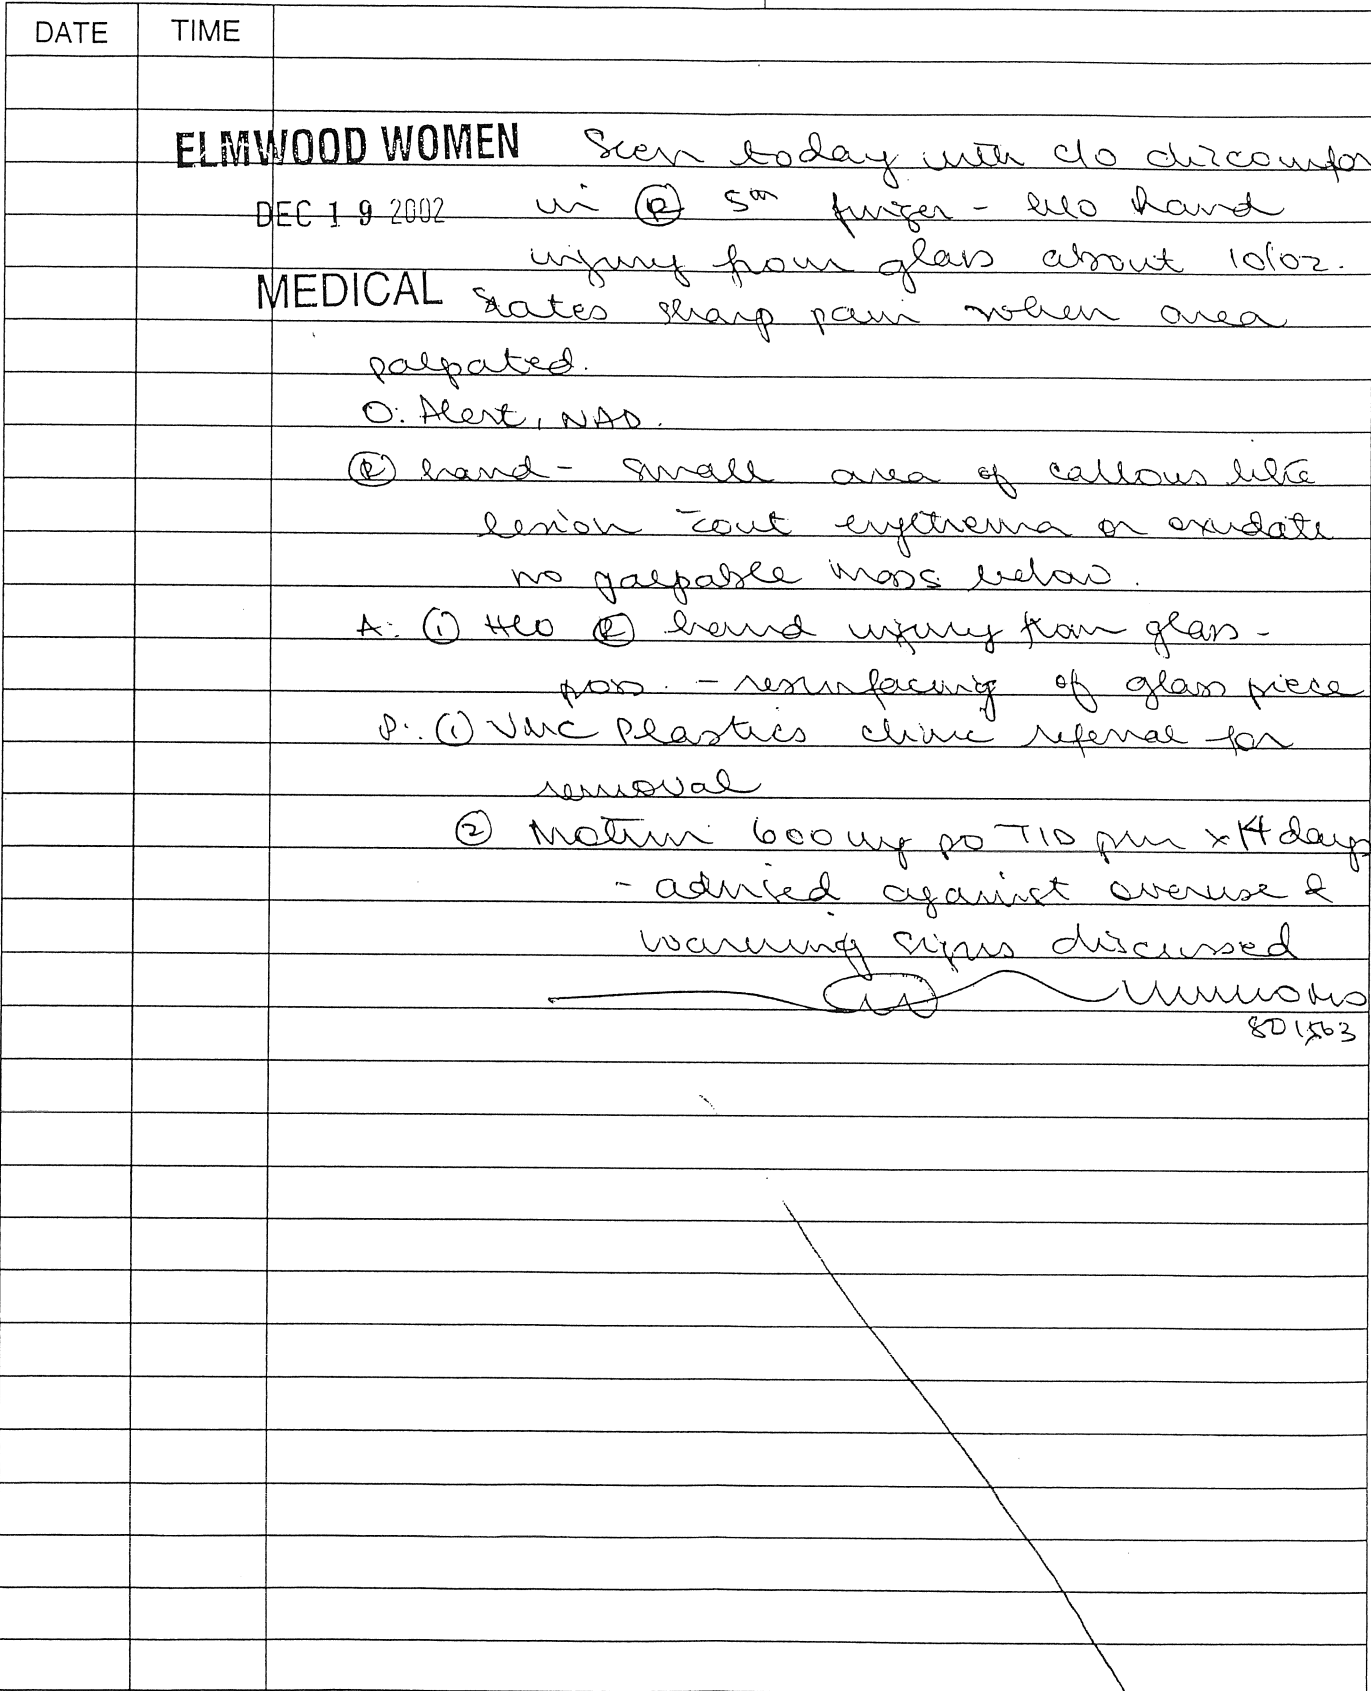 DATE TIME
ELMWOOD WOMEN Seen today with c/o discomfor
DEC 19 2002 in Ⓡ 5th finger - h/o hand
injury from glass about 10/02.
MEDICAL States sharp pain when area
palpated.
O: Alert, NAD.
Ⓡ hand - small area of callous like
lesion c̄out erythema or exudate
no palpable mass below.
A: ① H/O Ⓡ hand injury from glass -
poss. - resurfacing of glass piece
P: ① VMC Plastics clinic referral for
removal
② Motrin 600 mg po TID prn x 14 days
- advised against overuse &
warning signs discussed